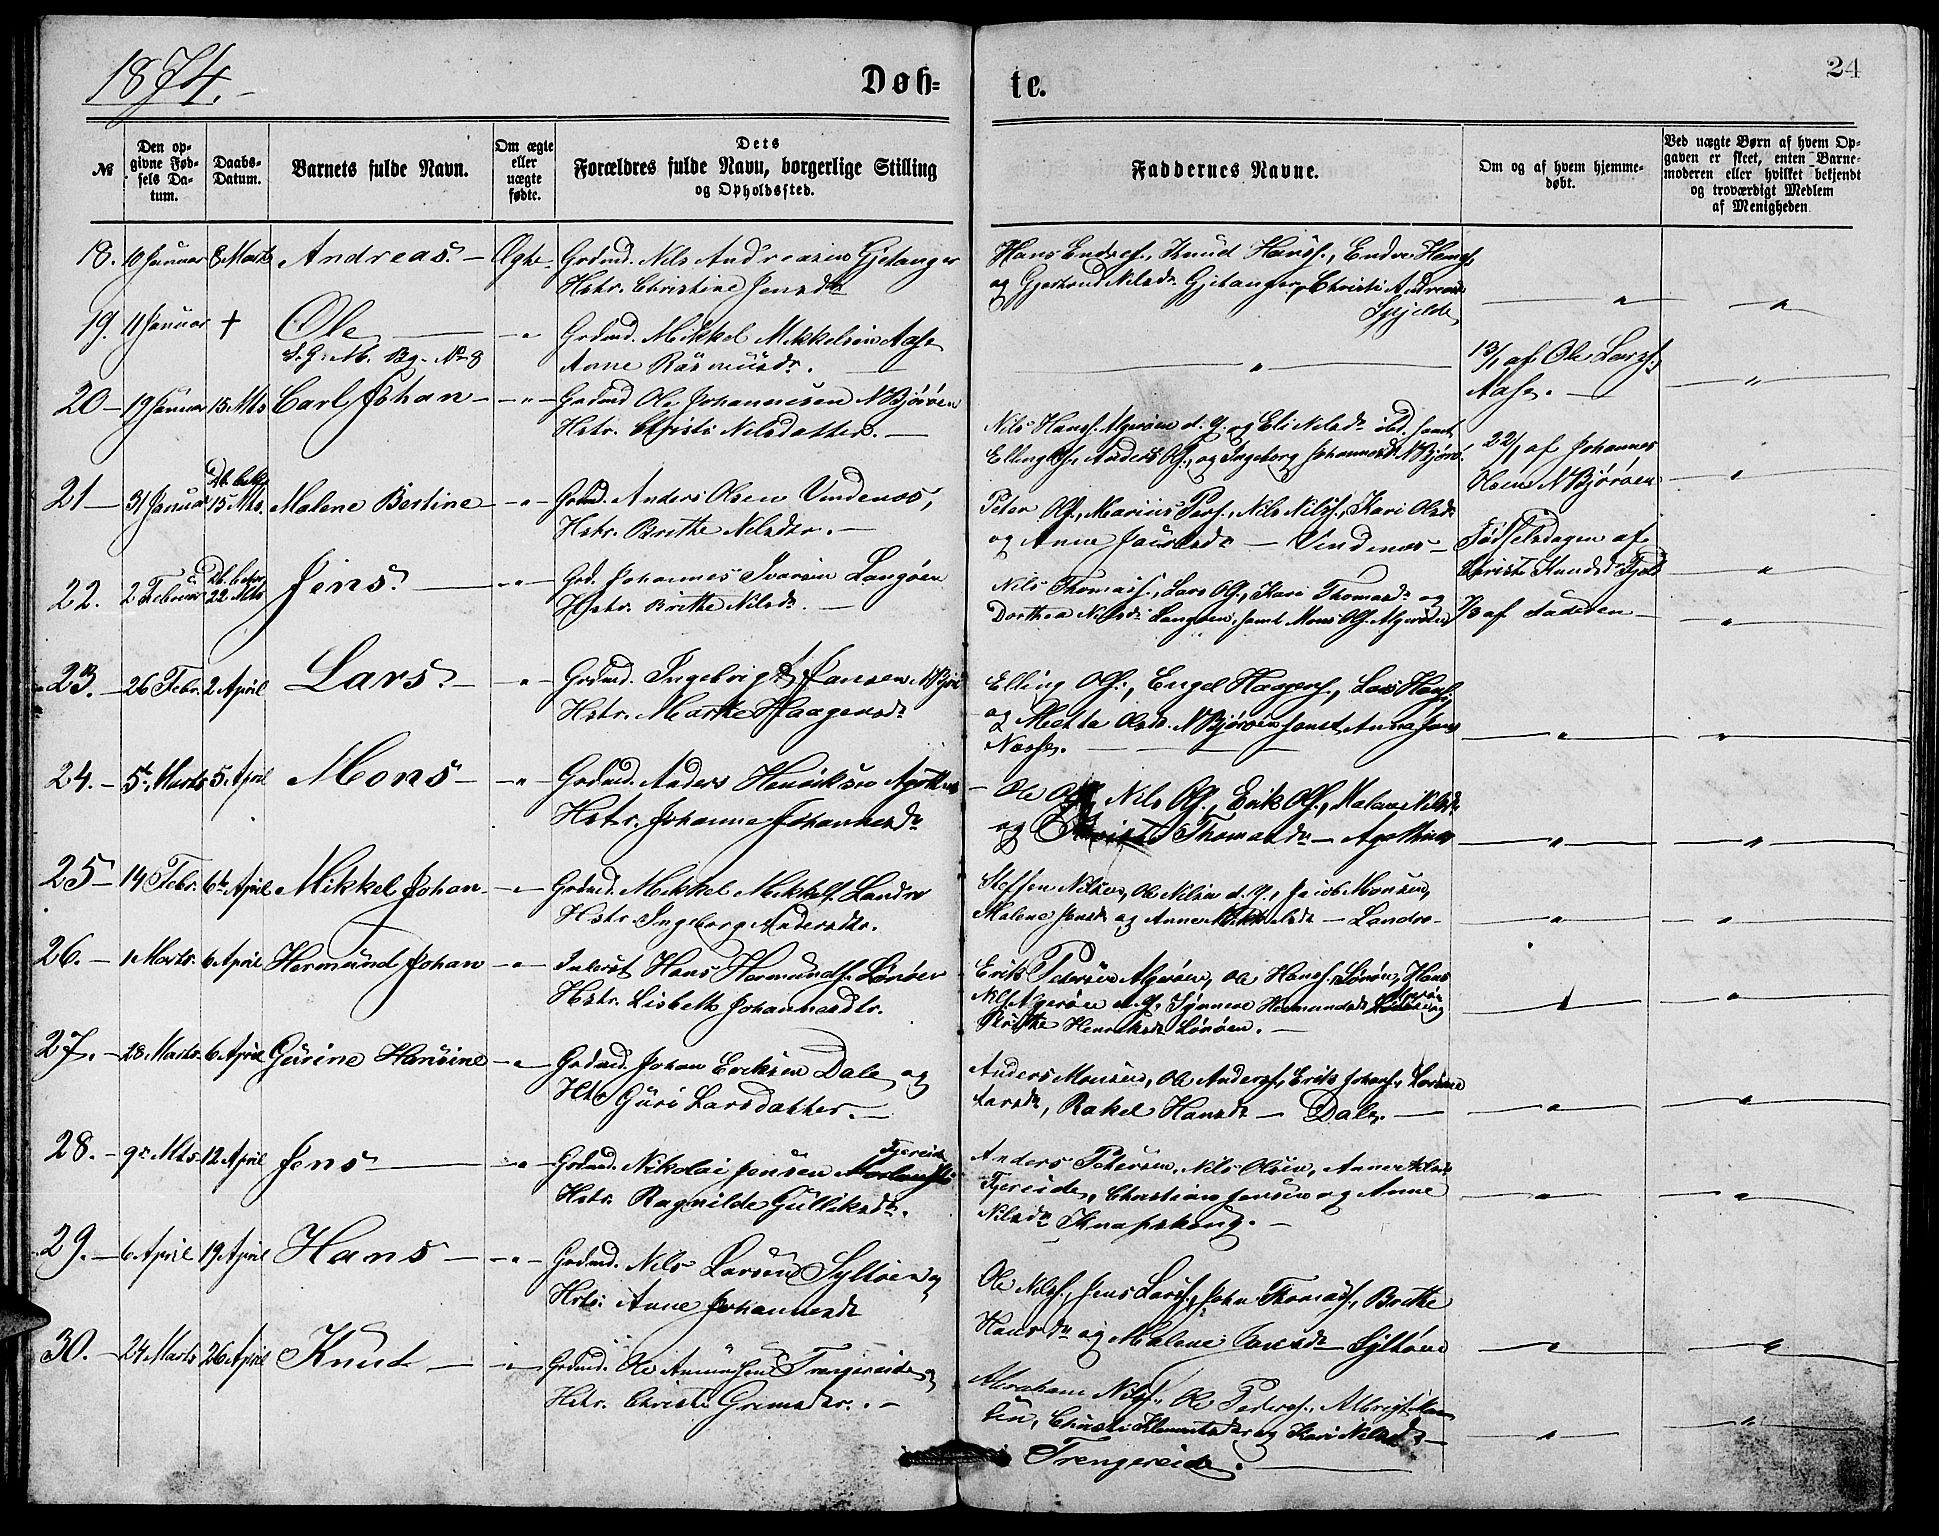 1874.
Døb-
te.
24
№
Den op-
givne Fød-
sels Da-
tum.
Daabs-
Datum.
Barnets fulde Navn.
Om ægte
eller
uægte
fødte.
Dets
Forældres fulde Navn, borgerlige Stilling
og Opholdssted.
Faddernes Navne.
Om og af hvem hjemme-
døbt.
Ved uægte Børn af hvem Op-
gaven er skeet, enten Barne-
moderen eller hvilket bekjendt
og troværdigt Medlem
af Menigheden
18. 10 Januar 8 Marts Andreas. Ægte Grdmd. Nils Andreasen Gjetanger
Hstr. Christine Jensdtr
Hans Endres., Knud Hanss., Endre Hanss.
og Gjertrud Nilsdr Gjetanger, Christi Andreasd
Spjelde
19. 11 Januar + Ole Grdmd. Mikkel Mikkelsen Aase
Anne Rasmusdr.
13/1 af Ole Larss.
Aase.
20 19 Januar 15 Mts Carl Johan Grdmd Ole Johannesen N Bjørøen
Hstr. Christi Nilsdatter.
Nils Hanss. Algerøen d. y. og Eli Nilsdr ibd. samt
Elling Anders Ols., og Ingeborg Johannesd N Bjørø.
22/1 af Johannes
Olsen N Bjørøen
21 31 Januar 15 Mts. Malene Bertine Grdmd. Anders Olsen Vindenæs,
Hstr. Brithe Nilsdtr.
Peter Ols., Marius Pers., Nils Nilss., Kari Olsdr
og Anne Vindenæs
Fødselsdagen af
Christi Knudsd Fjeld
22. 2 Februar 22 Mts Jens. Grd. Johannes Ivarsen Langøen
Hstr. Brithe Nilsdr.
Nils Thomass., Lars Ols., Kari Thomasdr og
Dorthea Nilsdr Langøen, samt Mons Ols. Algerøen
af Faderen
23. 26 Febr. 2 April Lars. Grdmd. Ingebrigt Hansen N Bjør
Hstr. Marthe Haagensdr
Elling Ols., Engel Haagens., Lars Hanss.,
og Metta Olsdr. N Bjørøen samt Anna
24. 5te Marts 5 April Mons Grdmd. Anders Henriksen Agotnes
Hstr. Johanne Johannesdr
Ole Ols. Nils Ols., Erik Ols., Malene Nilsdr
og Thomasdr Agotnes
25 14 Febr. 6te April Mikkel Johan Grdmd. Mikkel Mikkels. Landro
Hstr. Ingeborg Andersdtr.
Steffen Nilsen, Ole Nilsen d. y., Jacob Monsen,
Malene Jensdr og Anne Mikkelsdr Landro
26. 1 Marts. 6 April Hermund Johan Inderst Hans Hermunds. Lørøen
Hstr. Lisbeth Johannesdtr.
Erik Petersen Algerøen, Ole Hanss. Lørøen, Hans
Nils. Algerøen d. y., Synneve Hermundsd
Brithe Henriksdr Lørøen.
27. 28 Marts. 6 April Gurine Hansine Grdmd. Johan Eriksen Dale og
Hstr Guri Larsdatter.
Anders Monsen, Ole Anderss., Erik Johans.,
Larsdr, Rakel Hansdr Dale.
28. 9de Mts 12 April Jens Grdmd. Nikolai Jensen Tjereide
Hstr. Ragnilde Gulliksdr.
Anders Petersen, Nils Olsen, Anne
Tjereide, Christian Jensen og Anne
Nilsdr Knapskoug.
29. 6 April 19 April Hans Grdmd. Nils Larsen Syltøen og
Hstr: Anne Johannesdr
Ole Nilss., Jens Larss., John Thomass., Brithe
Hansdr og Malene Syltøen
30. 24 Marts 26 April Knud Grdmd. Ole Amundsen Trengereide og
Hstr. Christi Grimsdtr.
Abraham Nilss., Ole Peders., Albrigt
sen, Christi Klementsdtr og Kari Nilsdr
Trengereide.